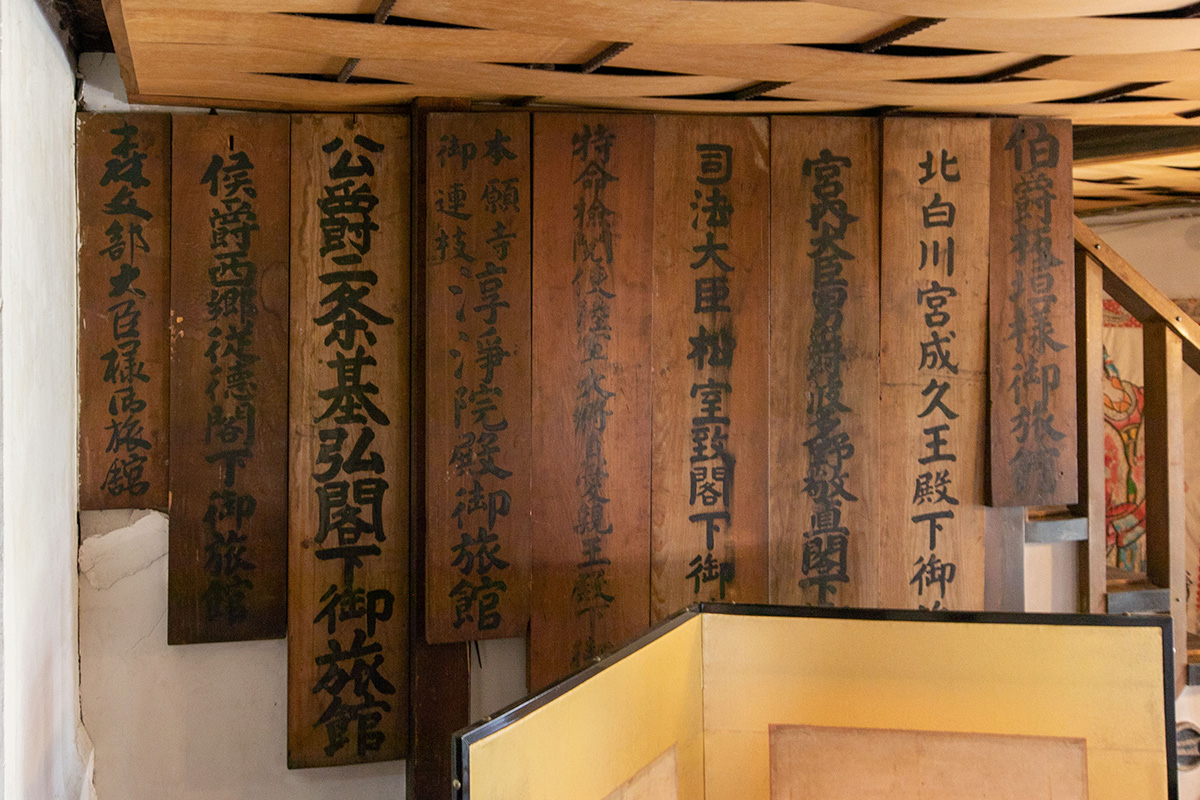 伯爵板垣様御旅館
北白川宮成久王殿下御
宮内大臣男爵波多野敬直閣下
司法大臣松室致閣下御
特命検閲使陸軍大将貞愛親王殿下御
本願寺
御連枝
淳淨院殿御旅館
公爵二条基弘閣下御旅館
侯爵西郷従徳閣下御旅館
森文部大臣様御旅館